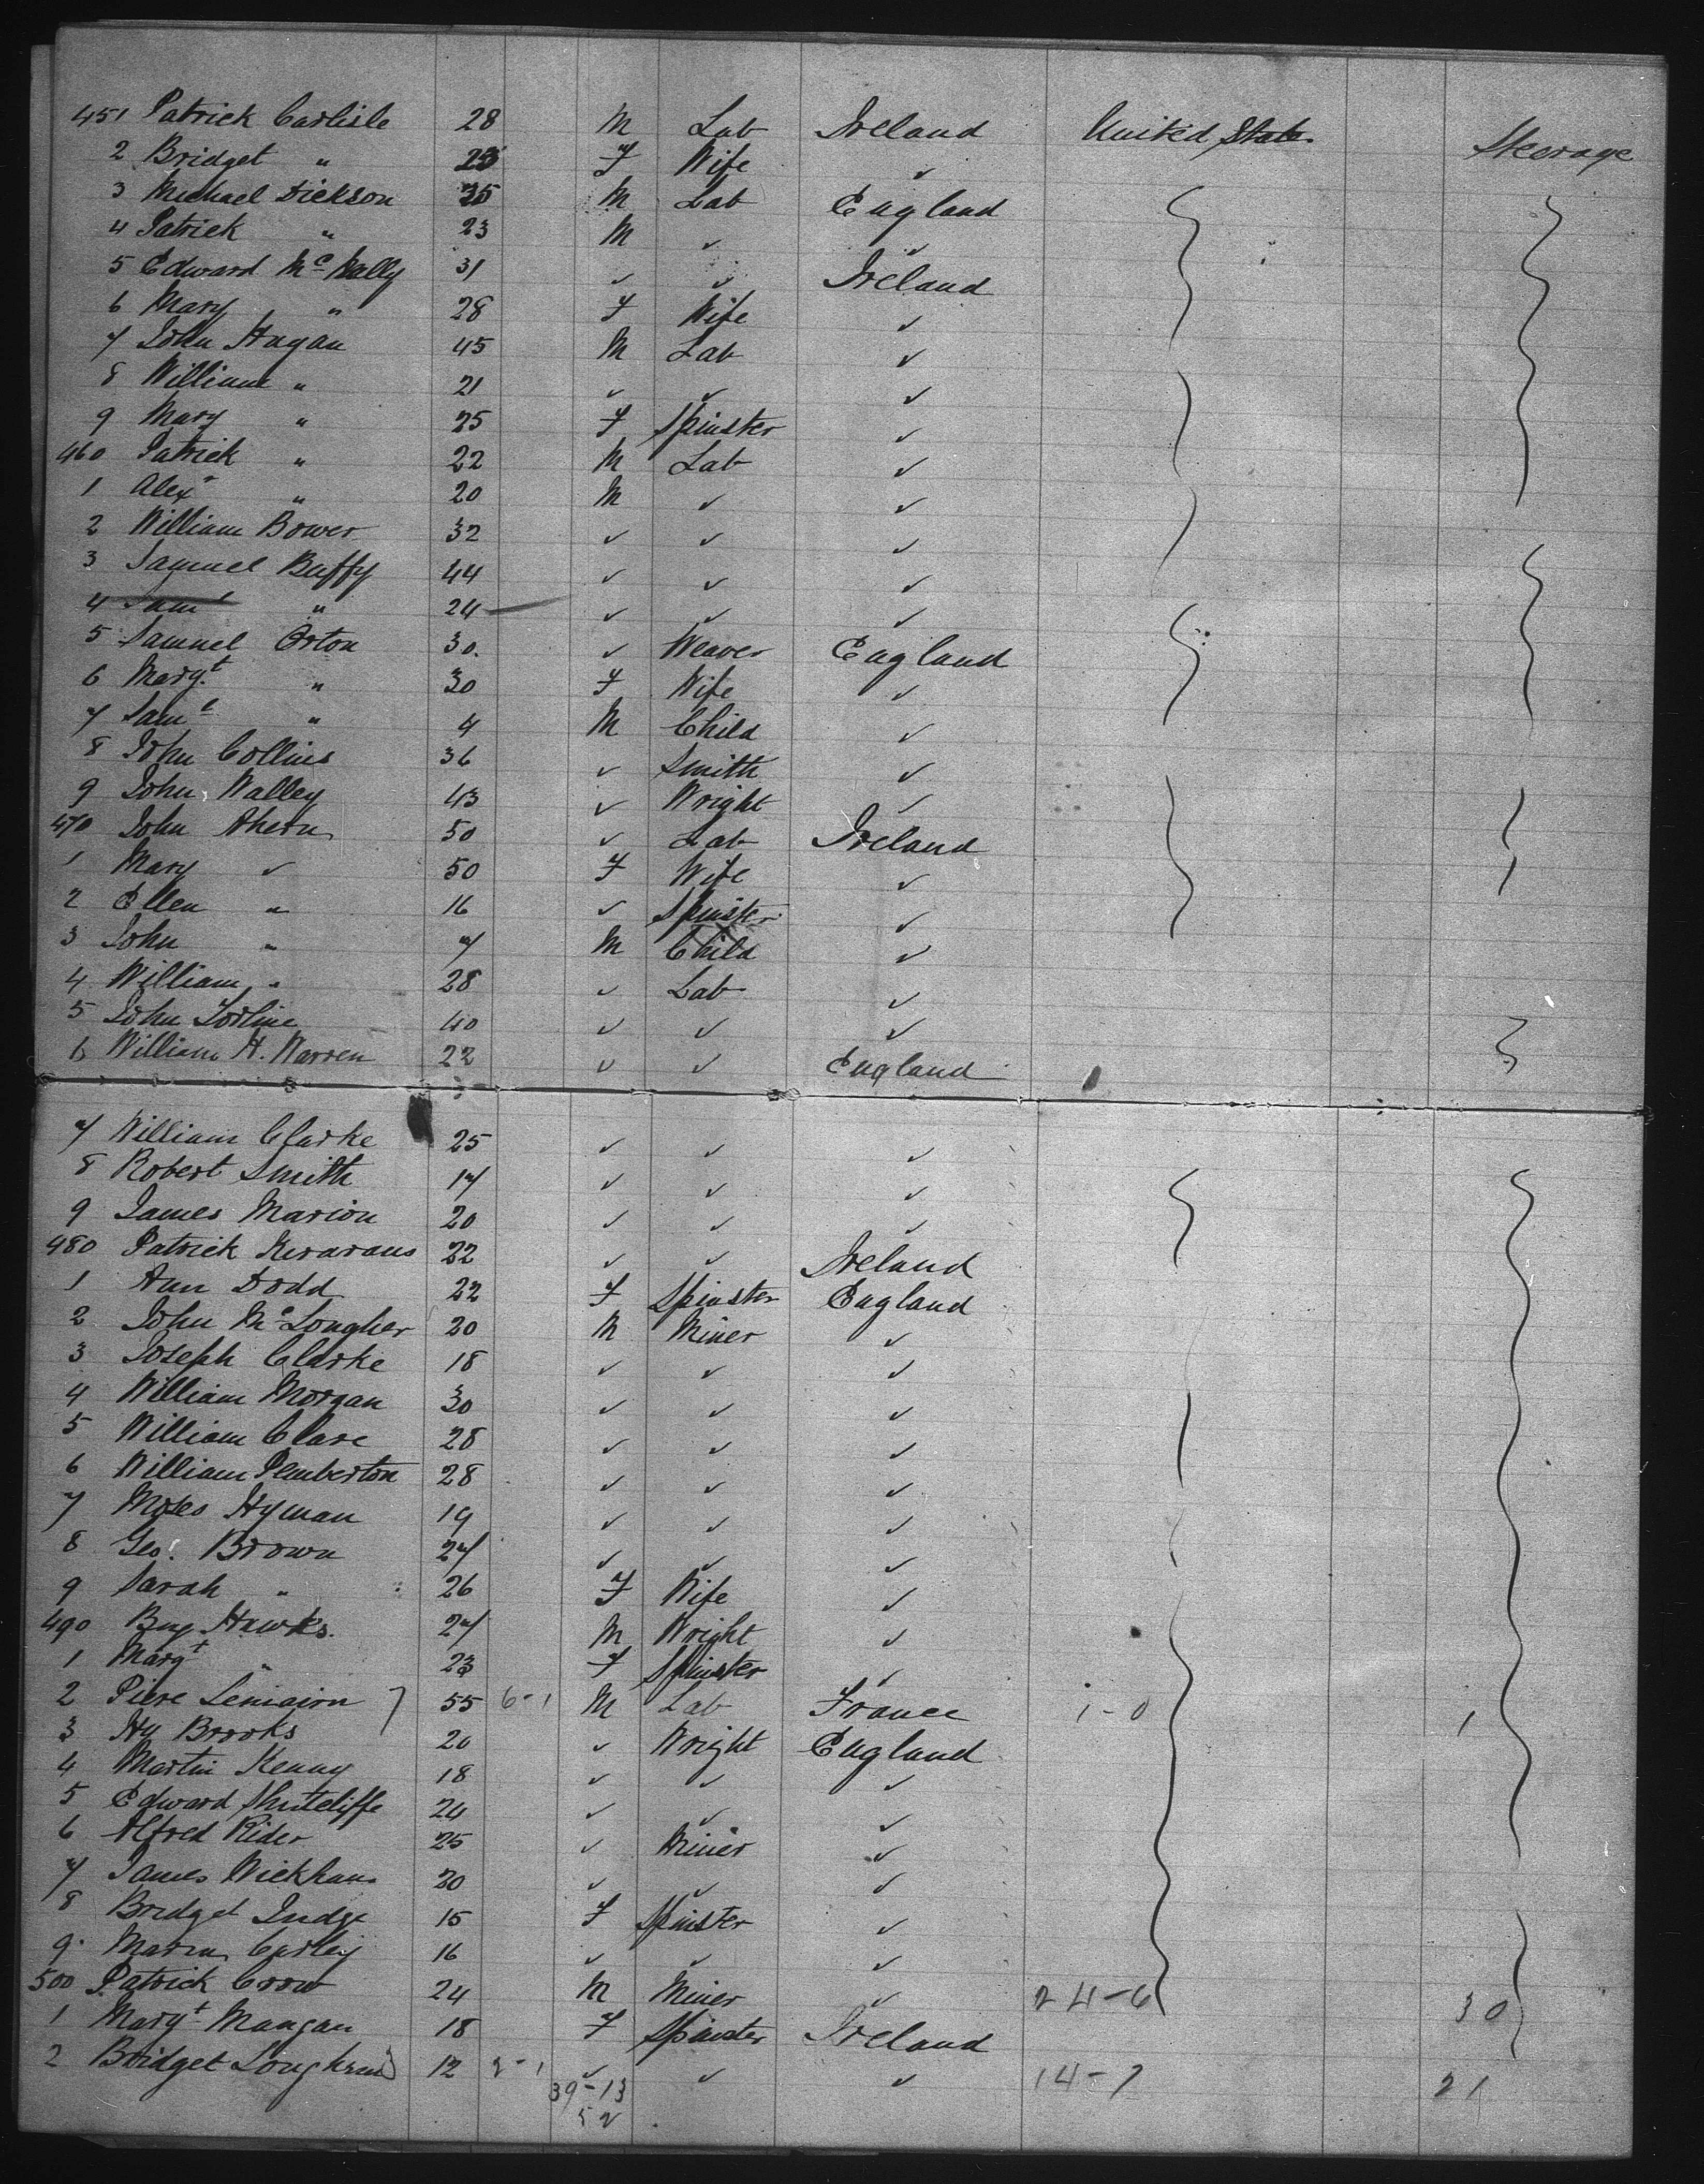 451 Patrick Carlisle 28 M Lab Ireland United States Steerage
2 Bridget " F Wife ✓
3 Michael Dickson 35 M Lab England
4 Patrick " 23 M ✓ ✓
5 Edward Mc Nally 31 ✓ ✓ Ireland
6 Mary " 28 F Wife ✓
7 John Hagan 45 M Lab ✓
8 William " 21 ✓ ✓ ✓
9 Mary " 25 F Spinster ✓
460 Patrick " 22 M Lab ✓
1 Alexr " 20 M ✓ ✓
2 William Bower 32 ✓ ✓ ✓
3 Samuel Buffy 44 ✓ ✓ ✓
4 Saml " 24 ✓ ✓ ✓
5 Samuel Orton 30. ✓ Weaver England
6 Margt " 30 F Wife ✓
7 Saml " 4 M Child ✓
8 John Collins 36 ✓ Smith ✓
9 John Walley 43 ✓ Wright ✓
470 John Ahern 50 ✓ Lab Ireland
1 Mary ✓ 50 F Wife ✓
2 Ellen " 16 ✓ Spinster ✓
3 John " 7 M Child ✓
4 William " 28 ✓ Lab ✓
5 John 40 ✓ ✓ ✓
6 William H. Warren 22 ✓ ✓ England
7 William Clarke 25 ✓ ✓ ✓
8 Robert Smith 17 ✓ ✓ ✓
9 James Marion 20 ✓ ✓ ✓
480 Patrick 22 ✓ ✓ Ireland
1 Ann Dodd 22 F Spinster England
2 John Mc Longher 20 M Miner ✓
3 Joseph Clarke 18 ✓ ✓ ✓
4 William Morgan 30 ✓ ✓ ✓
5 William Clare 28 ✓ ✓ ✓
6 William Pemberton 28 ✓ ✓ ✓
7 Moses Hyman 19 ✓ ✓ ✓
8 Geo. Brown 27 ✓ ✓ ✓
9 Sarah " 26 F Wife ✓
490 Benj Hawks. 27 M Wright ✓
1 Margt " 23 F Spinster ✓
2 Piere Lemaion 55 6-1 M Lab France 1-0 1
3 Hy Brooks 20 ✓ Wright England
4 Martin Kenny 18 ✓ ✓ ✓
5 Edward Shutcliffe 24 ✓ ✓ ✓
6 Alfred Rider 25 ✓ Miner ✓
7 James Wickham 20 ✓ ✓ ✓
8 Bridget Judge 15 F Spinster ✓
9 Maria Curley 16 ✓ ✓ ✓
500 Patrick Crow 24 M Miner ✓ 24-6 30
1 Margt Mangan 18 F Spinster Ireland
2 Bridget 12 2-1 ✓ ✓ ✓ 14-7 21
39-13
52